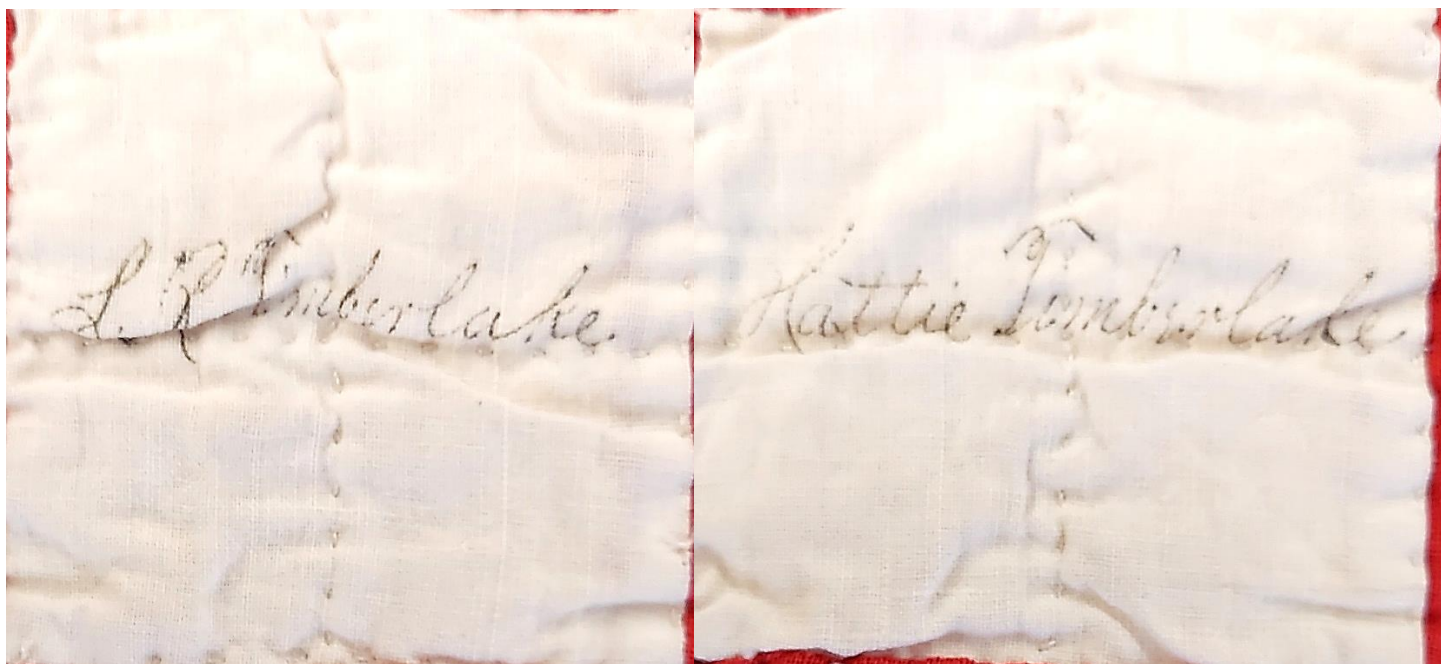 L. R. Timberlake
Hattie Timberlake